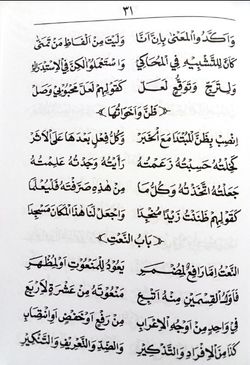 ٣١
وَأَكَّدُوا الْمَعْنَى بِإِنَّ أَنَّا وَلَيْتَ مِنْ أَلْفَاظِ مَنْ تَمَنَّى
كَأَنَّ لِلتَّشْبِيْهِ فِي الْمُحَاكِيْ وَاسْتَعْمَلُوْا لٰكِنَّ فِي اسْتِدْرَاكِ
وَلِتَرَجٍّ وَتَوَقُّعٍ لَعَلْ كَقَوْلِهِمْ لَعَلَّ مَحْبُوْبِيْ وَصَلْ
﴿ظَنَّ وَأَخَوَاتُهَا﴾
اِنْصِبْ بِظَنَّ الْمُبْتَدَا مَعَ الْخَبَرْ وَكُلُّ فِعْلٍ بَعْدَهَا عَلَى الْأَثَرْ
كَخِلْتُهُ حَسِبْتُهُ زَعَمْتُهُ رَأَيْتُهُ وَجَدْتُهُ عَلِمْتُهُ
جَعَلْتُهُ اتَّخَذْتُهُ وَكُلُّ مَا مِنْ هٰذِهِ صَرَّفْتَهُ فَلْيُعْلَمَا
كَقَوْلِهِمْ ظَنَنْتُ زَيْدًا مُنْجِدًا وَاجْعَلْ لَنَا هٰذَا الْمَكَانَ مَسْجِدًا
﴿بَابُ النَّعْتِ﴾
النَّعْتُ إِمَّا رَافِعٌ لِمُضْمَرِ يَعُوْدُ لِلْمَنْعُوْتِ أَوْ لِمُظْهَرِ
فَأَوَّلُ الْقِسْمَيْنِ مِنْهُ أَتْبِعِ مَنْعُوْتَهُ مِنْ عَشْرَةٍ لِأَرْبَعِ
فِيْ وَاحِدٍ مِنْ أَوْجُهِ الْإِعْرَابِ مِنْ رَفْعٍ أَوْ خَفْضٍ أَوِ انْتِصَابِ
كَذَا مِنَ الْإِفْرَادِ وَالتَّذْكِيْرِ وَالضِّدِّ وَالتَّعْرِيْفِ وَالتَّنْكِيْرِ